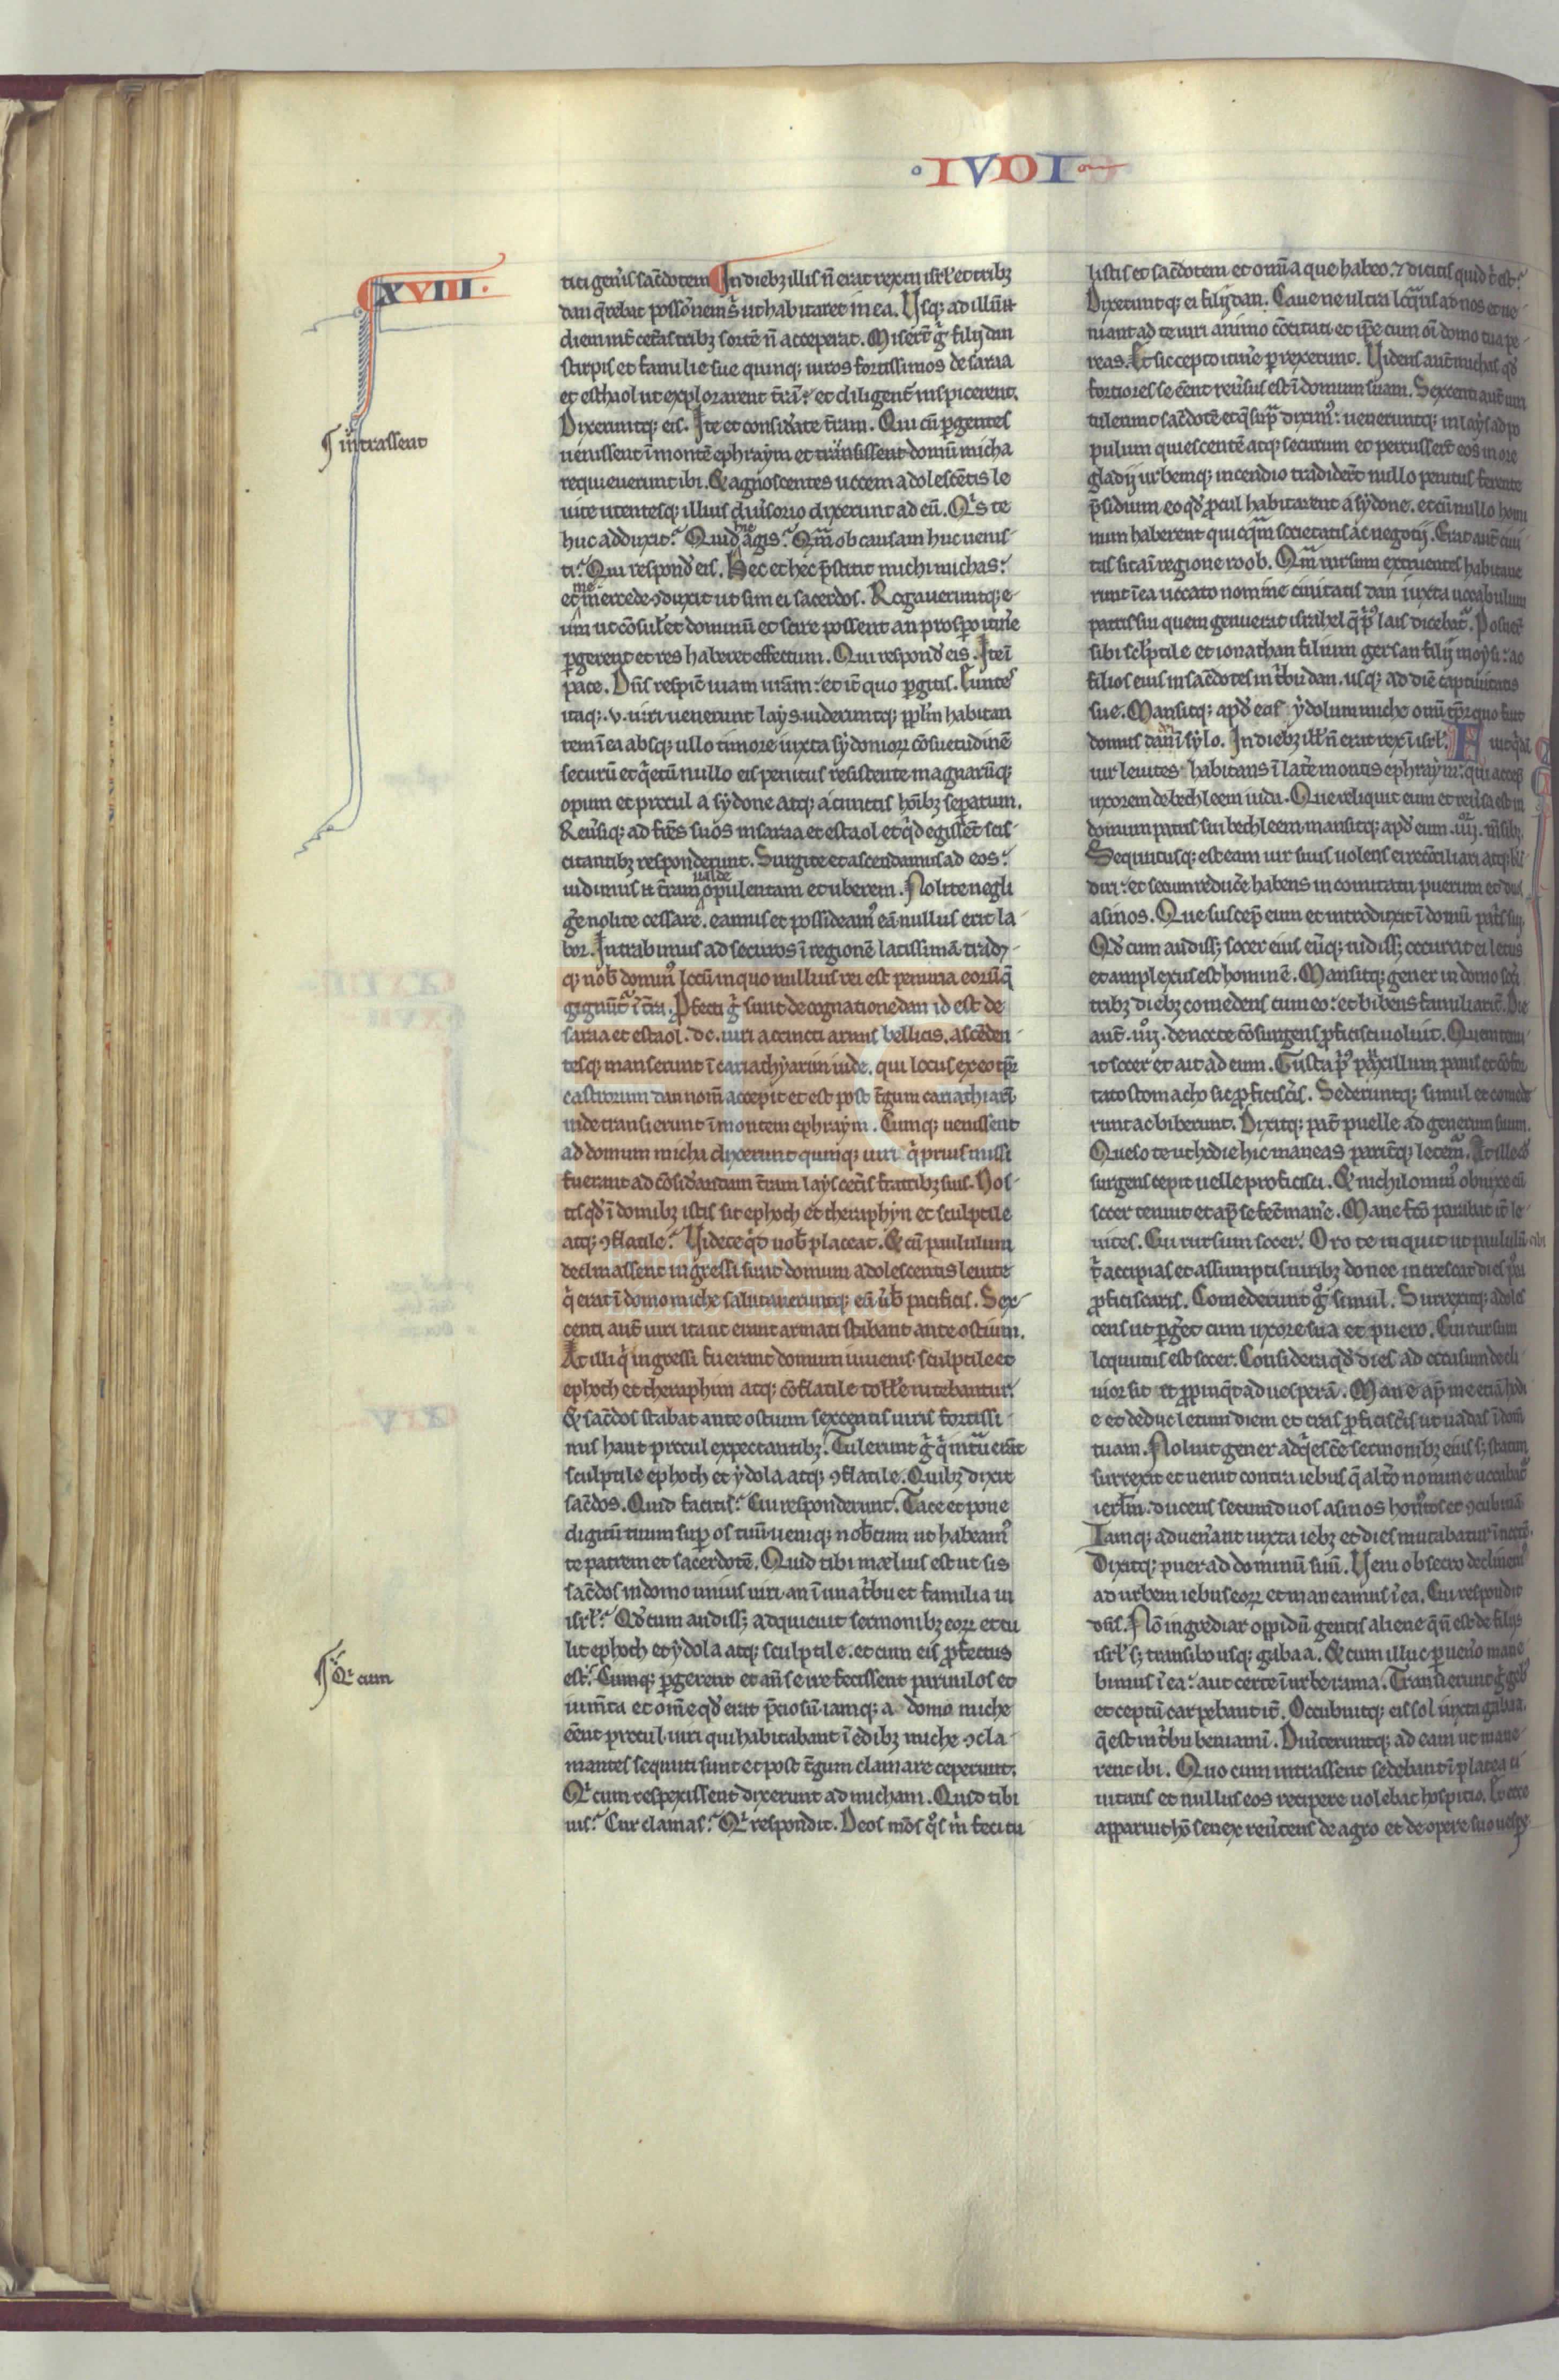 IVDI
XVIII.
intrassent
Qr cum
tici gen̄is sac̄dotem In dieb; illis n̄ erat rex in isrl' et trib;
dan q̄rebat poss̄onem s̄ ut habitaret in ea. Usq; ad illū n̄
diem int̄ cet̄as trib; sortē n̄ acceperat. Miser̄t ḡ filij dan
stirpis et familie sue quinq; uiros fortissimos de saraa
et esthaol ut explorarent t̄rā: et diligent̄ inspicerent.
Dixeruntq; eis. Ite et considate t̄ram. Qui cū p̄gentes
uenissent ī montē ephraym et transissent domū micha
requieuerunt ibi. & agnoscentes uocem adolescētis le
uite utentesq; illius diūsorio dixerunt ad eū. Qis te
huc adduxit? Quid agis? Qm̄ ob causam huc uenis
ti? Qui respond̄ eis. Hec et hec p̄stitit michi michas:
et me mercede 9duxit ut sim ei sacerdos. Rogaueruntq; e
um ut cōsul'et dominū et scire possent an prosp̄o itin̄e
p̄gerent et res haberet effectum. Qui respond̄ eis. Ite ī
pace. Dn̄s respic̄ uiam ur̄am: et it̄ quo p̄gitis. Euntes
itaq; .v. uiri uenerunt lays uideruntq; pplm̄ habitan
tem ī ea absq; ullo timore iuxta sydonior̄ cōsuetudinē
securū et q̄etū nullo eis penitus resistente magnarūq;
opum et procul a sydone atq; a cunctis hoīb; sep̄atum.
Reūsiq; ad fr̄es suos in saraa et estaol et q̄d egissēt scis
citantib; responderunt. Surgite et ascendamus ad eos:
uidimus n̄ t̄ram ualde opulentam et uberem. Nolite negli
ḡe nolite cessare. eamus et possideam9 eā nullus erit la
bor. Intrabimus ad securos ī regionē latissimā trad
q; nob̄ domin9 locū in quo nullius rei est penuria eorū q̄
gignūt̄ ī t̄ra. Pfecti ḡ sunt de cognatione dan id est de
saraa et estaol .dc. uiri accincti armis bellicis. ascēden
tesq; manserunt ī cariathyarim iude. qui locus ex eo tp̄r
castrorum dan nom̄ accepit et est post t̄gum cariathiarī
inde transierunt ī montem ephraym. Cumq; uenissent
ad domum miche dixerunt quinq; uiri q̄ prius missi
fuerant ad cōsid̄andam t̄ram lays cet̄is fratrib; suis. Nos
tis qd̄ ī domib; istis sit ephoth et theraphyn et sculptile
atq; 9flatile? Videte q̄d uob̄ placeat. & cū paululum
declinassent ingressi sunt domum adolescentis leuite
q̄ erat ī domo miche salutaueruntq; eū ūb̄ pacificis. Sex
centi aut̄ uiri ita ut erant armati stabant ante ostium.
At illi q̄ ingressi fuerant domum iuuenis. sculptile et
ephoth et theraphim atq; cōflatile tolle nitebantur.
& sac̄dos stabat ante ostium sexcentis uiris fortissi
mis haut procul expectantib;. Tulerunt ḡ q̄ intūerāt
sculptile ephoth et ydola atq; 9flatile. Quib; dixit
sac̄dos. Quid facitis? Cui responderunt. Tace et pone
digitū tuum sup̄ os tuū ueniq; nob̄cum ut habeam9
te patrem et sacerdotē. Quid tibi mælius est ut sis
sac̄dos in domo unius uiri. an ī una t̄bu et familia in
isrl'? Qd̄ cum audiss; adquieuit sermonib; eor̄ et tu
lit ephoth et ydola atq; sculptile. et cum eis p̄fectus
est. Cumq; p̄gerent et an̄ se ire fecissent paruulos et
ium̄ta et om̄e qd̄ erat p̄ciosū. iamq; a domo miche
eēnt procul. uiri qui habitabant ī edib; miche 9cla
mantes sequuti sunt et post t̄gum clamare ceperunt.
Qi cum respexissent dixerunt ad micham. Quid tibi
uis? Cur clamas? Qi respondit. Deos mōs q̄s m̄ feci tu
listis et sac̄dotem et omīa que habeo. 7 dicitis quid t̄ est?
Dixeruntq; ei filij dan. Caue ne ultra loq̄ris ad nos et ue
niant ad te uiri animo cōcitati et ip̄e cum oī domo tua pe
reas. Et sic cepto itin̄e p̄rexerunt. Videns aut̄ michas qd̄
fortiores se eēnt reūsus est ī domum suam. Sexcenti aut̄ uiri
tulerunt sac̄dotē et q̄ sup̄ dixim9: ueneruntq; in lays ad po
pulum quiescentē atq; securum et percusser̄t eos in ore
gladij urbemq; incendio tradider̄t nullo penitus ferente
p̄sidium eo qd̄ p̄cul habitarent a sydone. et cū nullo homi
num haberent quicq̄m societatis ac negotij. Erat aut̄ ciui
tas sita ī regione roob. Qm̄ rursum extruentes habitaue
runt ī ea uocato nomine ciuitatis dan iuxta uocabulum
patris sui quem genuerat israhel q̄ p̄9 lais dicebat̄. Posuer̄t
sibi sclptile et ionathan filium gersan filij moysi: ac
filios eius in sac̄dotes in t̄bu dan. usq; ad diē captiuitatis
sue. Mansitq; apd̄ eos ydolum miche omī tp̄r quo fuit
domus dn̄i ī sylo. In dieb; ill' n̄ erat rex ī isrl'. Fuit q̄dā
uir leuites habitans ī lat̄e montis ephraym: qui accep̄
uxorem de bethleem iuda. Que reliquit eum et reūsa est in
domum patris sui bethleem. mansitq; apd̄ eum .iiij. m̄sib;.
Sequutusq; est eam uir suus uolens ei recōciliari atq; bl
diri: et secum reduc̄e habens in comitatu puerum et duos
asinos. Que suscep̄ eum et introduxit ī domū pat̄s sui.
Qd̄ cum audiss; socer eius eūq; uidiss; occurrit ei letus
et amplexus est hominē. Mansitq; gener in domo soc̄i
trib; dieb; comedens cum eo: et bibens familiarit̄. Die
aut̄ .iiij. de nocte cōsurgens p̄ficisci uoluit. Quem tenu
it socer et ait ad eum. Gusta p̄9 pauxillum panis et cōfor
tato stomacho sic p̄ficisc̄is. Sederuntq; simul et comede
runt ac biberunt. Dixitq; pat̄ puelle ad generum suum.
Queso te ut hodie hic maneas parit̄q; letem̄. At ille cō
surgens cepit uelle proficisci. & nichilomin9 obnixe eū
socer tenuit et ap̄ se fec̄ mane. Mane fc̄o parabat it̄ le
uites. Cui rursum socer. Oro te inquit ut paululū cibi
accipias et assumptis uirib; donec increscat dies p9
p̄ficiscaris. Comederunt ḡ simul. Surrexitq; adoles
cens ut p̄ḡet cum uxore sua et puero. Cui rursum
loquutus est socer. Considera qd̄ dies ad occasum decli
uior sit et p̄pinq̄t ad uesperā. Mane ap̄ me etiā hodi
e et deduc letum diem et cras p̄ficisc̄is ut uadas ī dom̄
tuam. Noluit gener adq̄esc̄e sermonib; eius s; statim
surrexit et uenit contra iebus q̄ alt̄o nomine uocabat̄
ierl'm. ducens secum duos asinos hon̄tos et 9cubinā.
Iamq; aduen̄ant iuxta ieb; et dies mutabatur ī noctē.
Dixitq; puer ad dominū suū. Veni obsecro declinem9
ad urbem iebuseor̄ et maneamus ī ea. Cui respondit
dn̄s. Nō ingrediar oppidū gentis aliene q̄ n̄ est de filijs
isrl' s; transibo usq; gabaa. & cum illuc p̄uen̄o mane
bimus ī ea: aut certe ī urbe rama. Transierunt ḡ geb9
et ceptū carpebant it̄. Occubuitq; eis sol iuxta gabaa.
q̄ est in t̄bu beniamī. Diūteruntq; ad eam ut mane
rent ibi. Quo cum intrassent sedebant ī platea ci
uitatis et nullus eos recipere uolebat hospicio. Et ecce
apparuit hō senex reūtens de agro et de opere suo uesp̄e